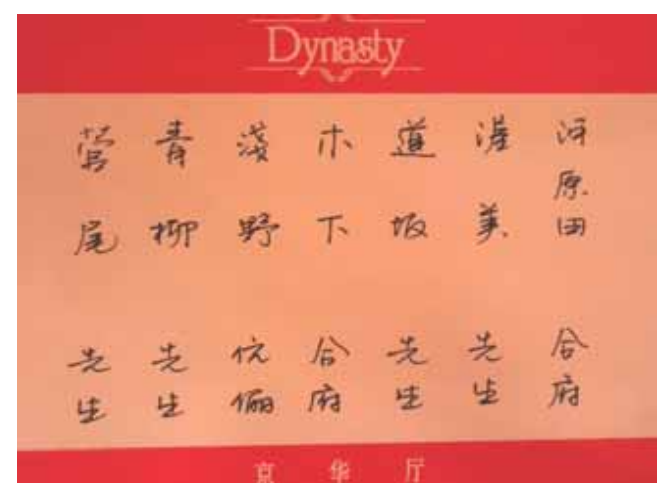 Dynasty
河原田 合府
渥美 先生
道坂 先生
木下 合府
淺野 伉俪
青柳 先生
鶯尾 先生
京华厅